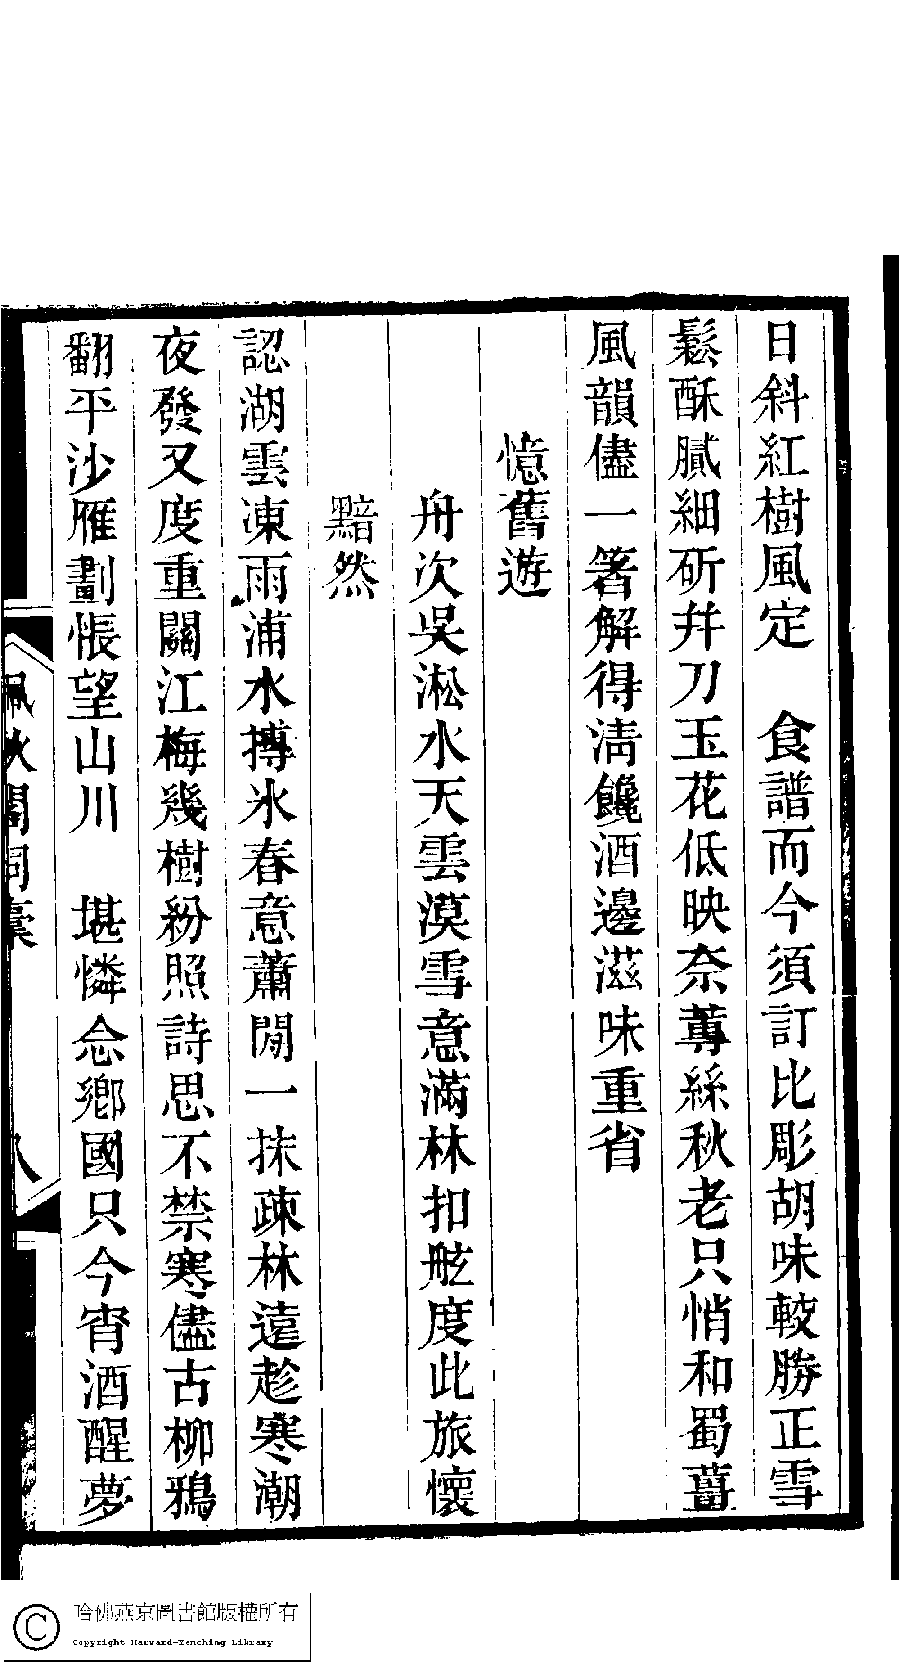 日斜紅樹風定　食譜而今須訂比彫胡味較勝正雪
鬆酥膩細斫并刀玉花低映奈蓴絲秋老只悄和蜀薑
風韻儘一箸解得清饞酒邊滋味重省
憶舊遊
舟次吳淞水天雲漠雪意滿林扣舷度此旅懷
黯然
認湖雲凍雨浦水摶冰春意蕭閒一抹疎林遠趁寒潮
夜發又度重關江梅幾樹紛照詩思不禁寒儘古柳鴉
翻平沙雁劃悵望山川　堪憐念鄉國只今宵酒醒夢
詞稾
八
哈佛燕京圖書館版權所有
Copyright Harvard-Yenching Library